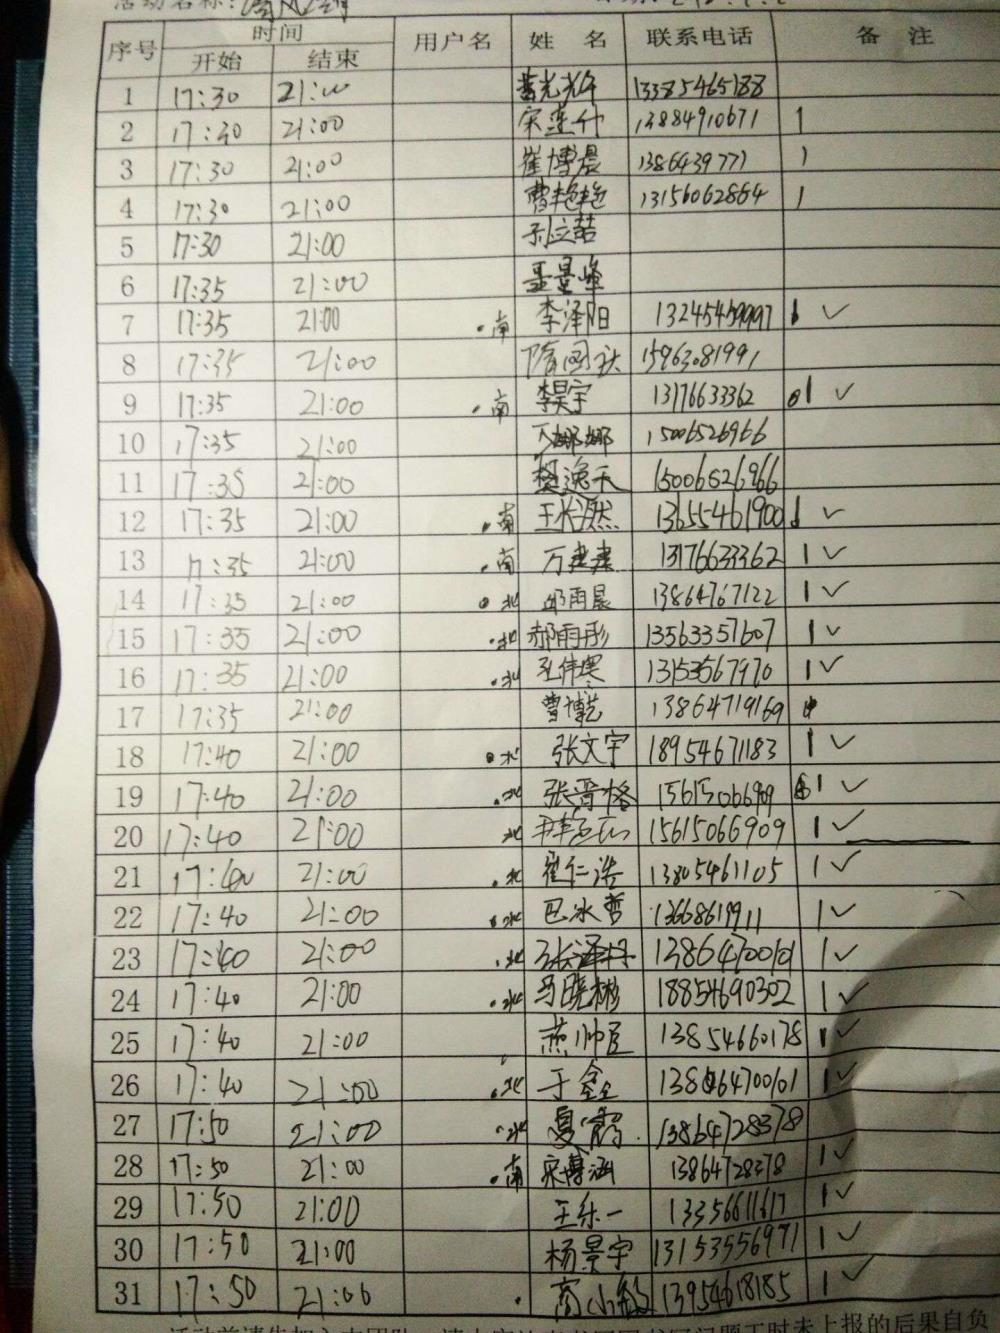 活动名称:
序号 时间 用户名 姓 名 联系电话 备 注
开始 结束
1 17:30 21:00 13385465188
2 17:30 21:00 宋连升 13884910671 1
3 17:30 21:00 崔博晨 1386439771 1
4 17:30 21:00 曹艳艳 13156062864 1
5 17:30 21:00 孙立喆
6 17:35 21:00 王景峰
7 17:35 21:00 .南 李泽阳 13245459997 ✓
8 17:35 21:00 隋国秋 15963081991
9 17:35 21:00 .南 李昊宇 13176633362 1 ✓
10 17:35 21:00 万娜娜 15006526966
11 17:35 21:00 樊逸天 15006526966
12 17:35 21:00 .南 王长然 13655461900 ✓
13 17:35 21:00 .南 万建建 13176633362 1 ✓
14 17:35 21:00 .北 邱雨晨 13864767122 1 ✓
15 17:35 21:00 .北 郝雨彤 13563357607 1 ✓
16 17:35 21:00 .北 孔伟寒 13153567970 1 ✓
17 17:35 21:00 曹博艺 13864719169
18 17:40 21:00 .北 张文宇 18954671183 1 ✓
19 17:40 21:00 .北 张晋恪 15615066909 1 ✓
20 17:40 21:00 北 15615066909 1 ✓
21 17:40 21:00 .北 崔仁浩 13805461105 1 ✓
22 17:40 21:00 .北 巴冰哲 13668619911 1 ✓
23 17:40 21:00 .北 张泽梓 13864700101 1 ✓
24 17:40 21:00 .北 马晓彬 18854690302 1 ✓
25 17:40 21:00 燕帅臣 13854660178 1 ✓
26 17:40 21:00 .北 于鑫 13864700101 1 ✓
27 17:50 21:00 .北 夏霄 13864728378
28 17:50 21:00 .南 宋博涵 13864728378 1 ✓
29 17:50 21:00 王乐一 13356611617 1 ✓
30 17:50 21:00 杨景宇 13153556971 1 ✓
31 17:50 21:00 . 高小敏 13954618185 1 ✓